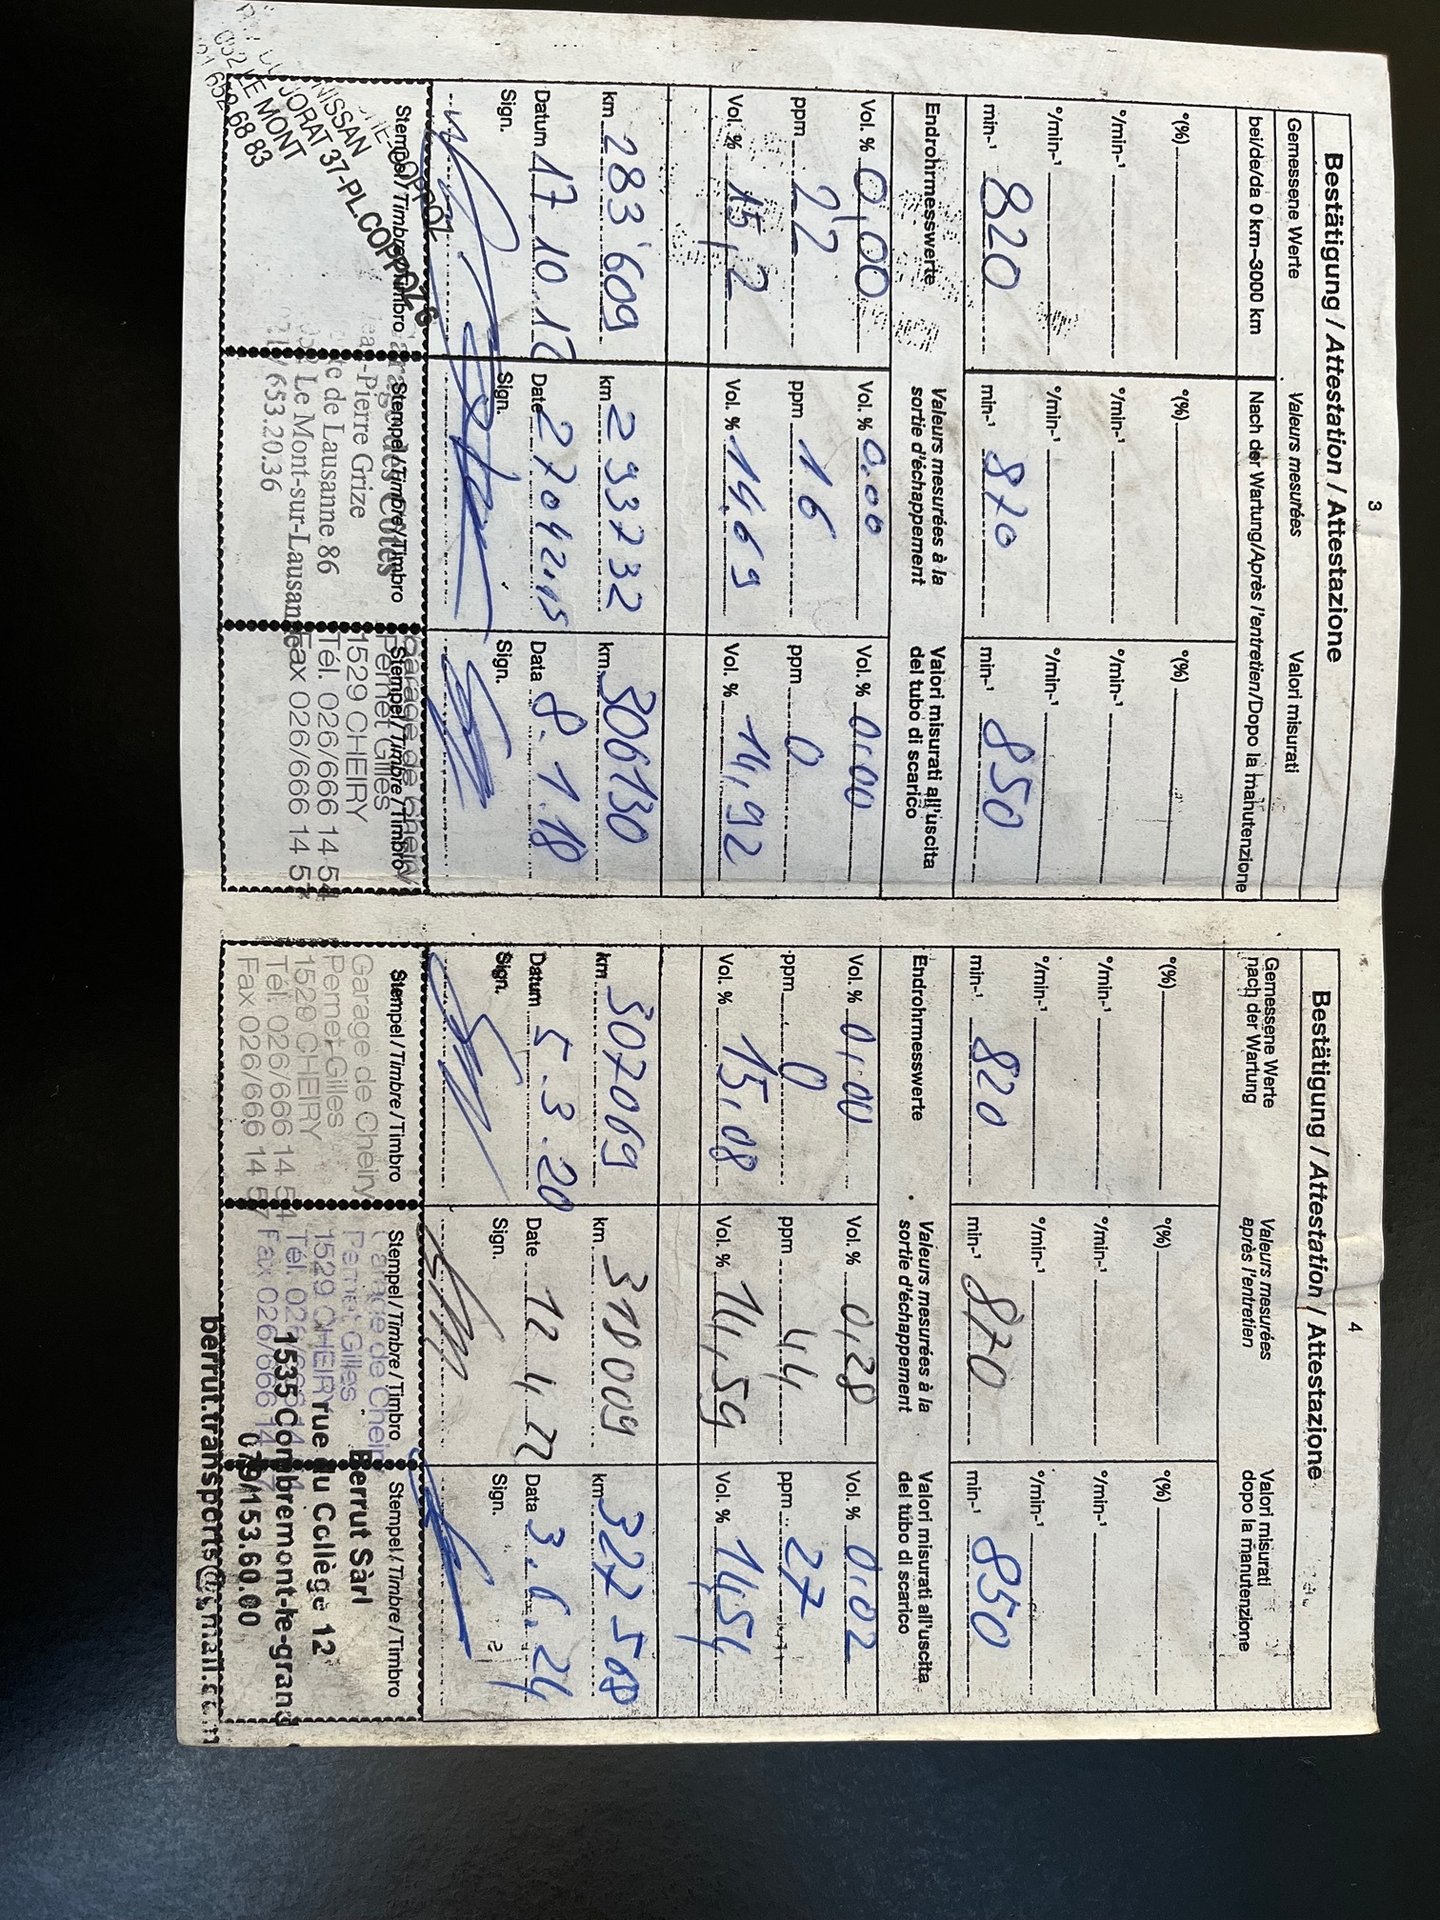 3
Bestätigung / Attestation / Attestazione
Gemessene Werte Valeurs mesurées Valori misurati
bei/de/da 0 km–3000 km Nach der Wartung/Après l'entretien/Dopo la manutenzione
°(%) °(%) °(%)
°/min-¹ °/min-¹ °/min-¹
°/min-¹ °/min-¹ °/min-¹
min-¹ 820 min-¹ 870 min-¹ 850
Endrohrmesswerte Valeurs mesurées à la Valori misurati all'uscita
sortie d'échappement del tubo di scarico
Vol. % 0,00 Vol. % 0.00 Vol. % 0.00
ppm 22 ppm 16 ppm 0
Vol. % 15,2 Vol. % 14.69 Vol. % 14,92
km 283'609 km 293732 km 306130
Datum 17.10.12 Date 27 04 2015 Data 8.1.18
Sign. Sign. Sign.
Stempel/Timbre/Timbro Stempel/Timbre/Timbro Stempel/Timbre/Timbro
NISSAN
JORAT 37-PL.COPPOZ
LE MONT
652 68 83
-Pierre Grize
de Lausanne 86
Le Mont-sur-Lausanne
653.20.36
Garage de Cheiry
Pernet Gilles
1529 CHEIRY
Tél. 026/666 14 54
Fax 026/666 14 5
4
Bestätigung / Attestation / Attestazione
Gemessene Werte Valeurs mesurées Valori misurati
nach der Wartung après l'entretien dopo la manutenzione
°(%) °(%) °(%)
°/min-¹ °/min-¹ °/min-¹
°/min-¹ °/min-¹ °/min-¹
min-¹ 820 min-¹ 870 min-¹ 850
Endrohrmesswerte Valeurs mesurées à la Valori misurati all'uscita
sortie d'échappement del tubo di scarico
Vol. % 0,00 Vol. % 0,28 Vol. % 0,02
ppm 0 ppm 44 ppm 27
Vol. % 15,08 Vol. % 14,59 Vol. % 14,54
km 307069 km 318009 km 322508
Datum 5.3.20 Date 12.4.22 Data 3.6.24
Sign. Sign. Sign.
Stempel/Timbre/Timbro Stempel/Timbre/Timbro Stempel/Timbre/Timbro
Garage de Cheiry
Pernet Gilles
1529 CHEIRY
Tél. 026/666 14 54
Fax 026/666 14 5
Garage de Cheiry
Pernet Gilles
1529 CHEIRY
Tél. 026/666 14
Fax 026/666 14
Berrut Sàrl
rue du Collège 12
1535 Combremont-le-grand
079/153.60.00
berrut.transports@gmail.com